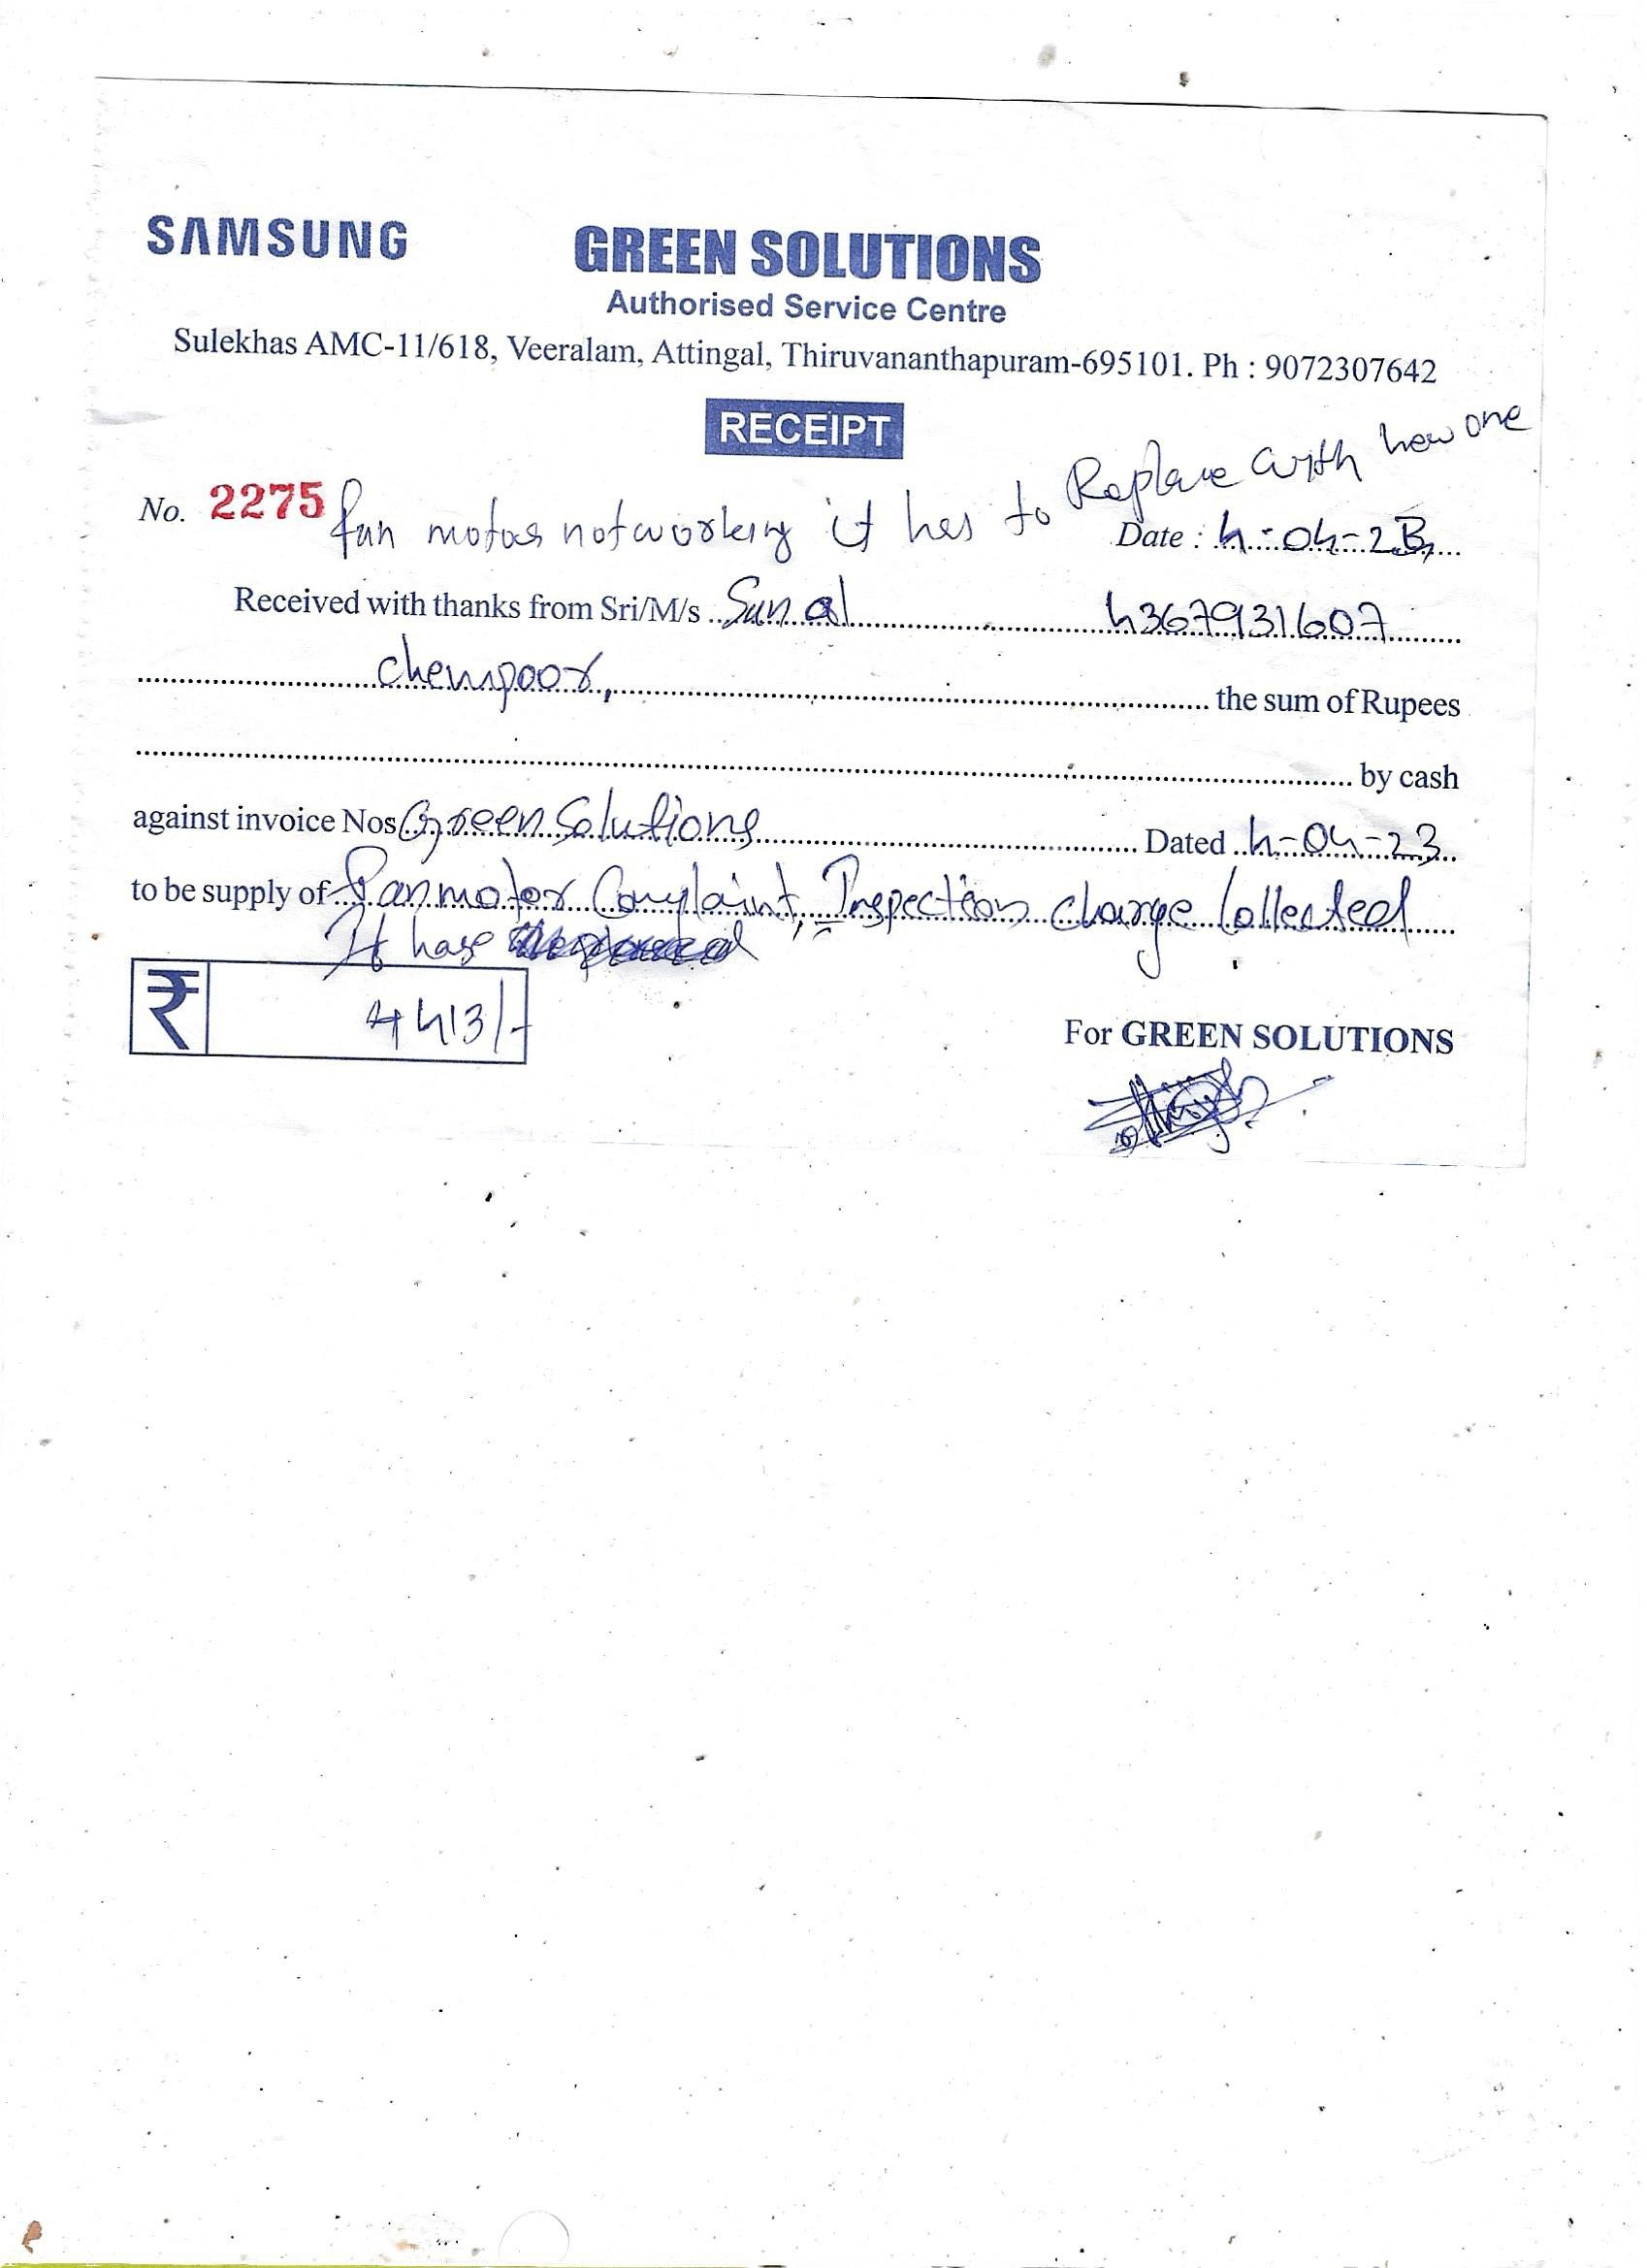 SAMSUNG
GREEN SOLUTIONS
Authorised Service Centre
Sulekhas AMC-11/618, Veeralam, Attingal, Thiruvananthapuram-695101. Ph : 9072307642
RECEIPT
No. 2275 fan motor not working it has to Replace with new one
Date : 4-04-23
Received with thanks from Sri/M/s 4367931607
the sum of Rupees
by cash
against invoice Nos Green Solutions Dated 4-04-23
to be supply of Fan motor Complaint, Inspection charge Collected
It has
₹ 413/-
For GREEN SOLUTIONS